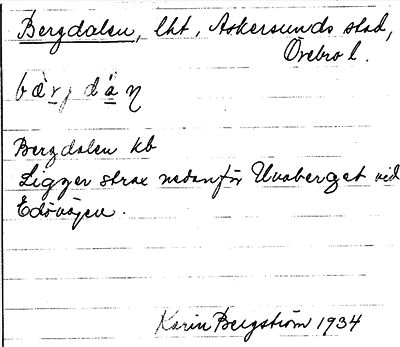 Bergdalen, lht, Askersunds stad,
Örebro l.
Bergdalen kb
Ligger strax nedanför Uvaberget vid
Edövägen.
Karin Bergström 1934